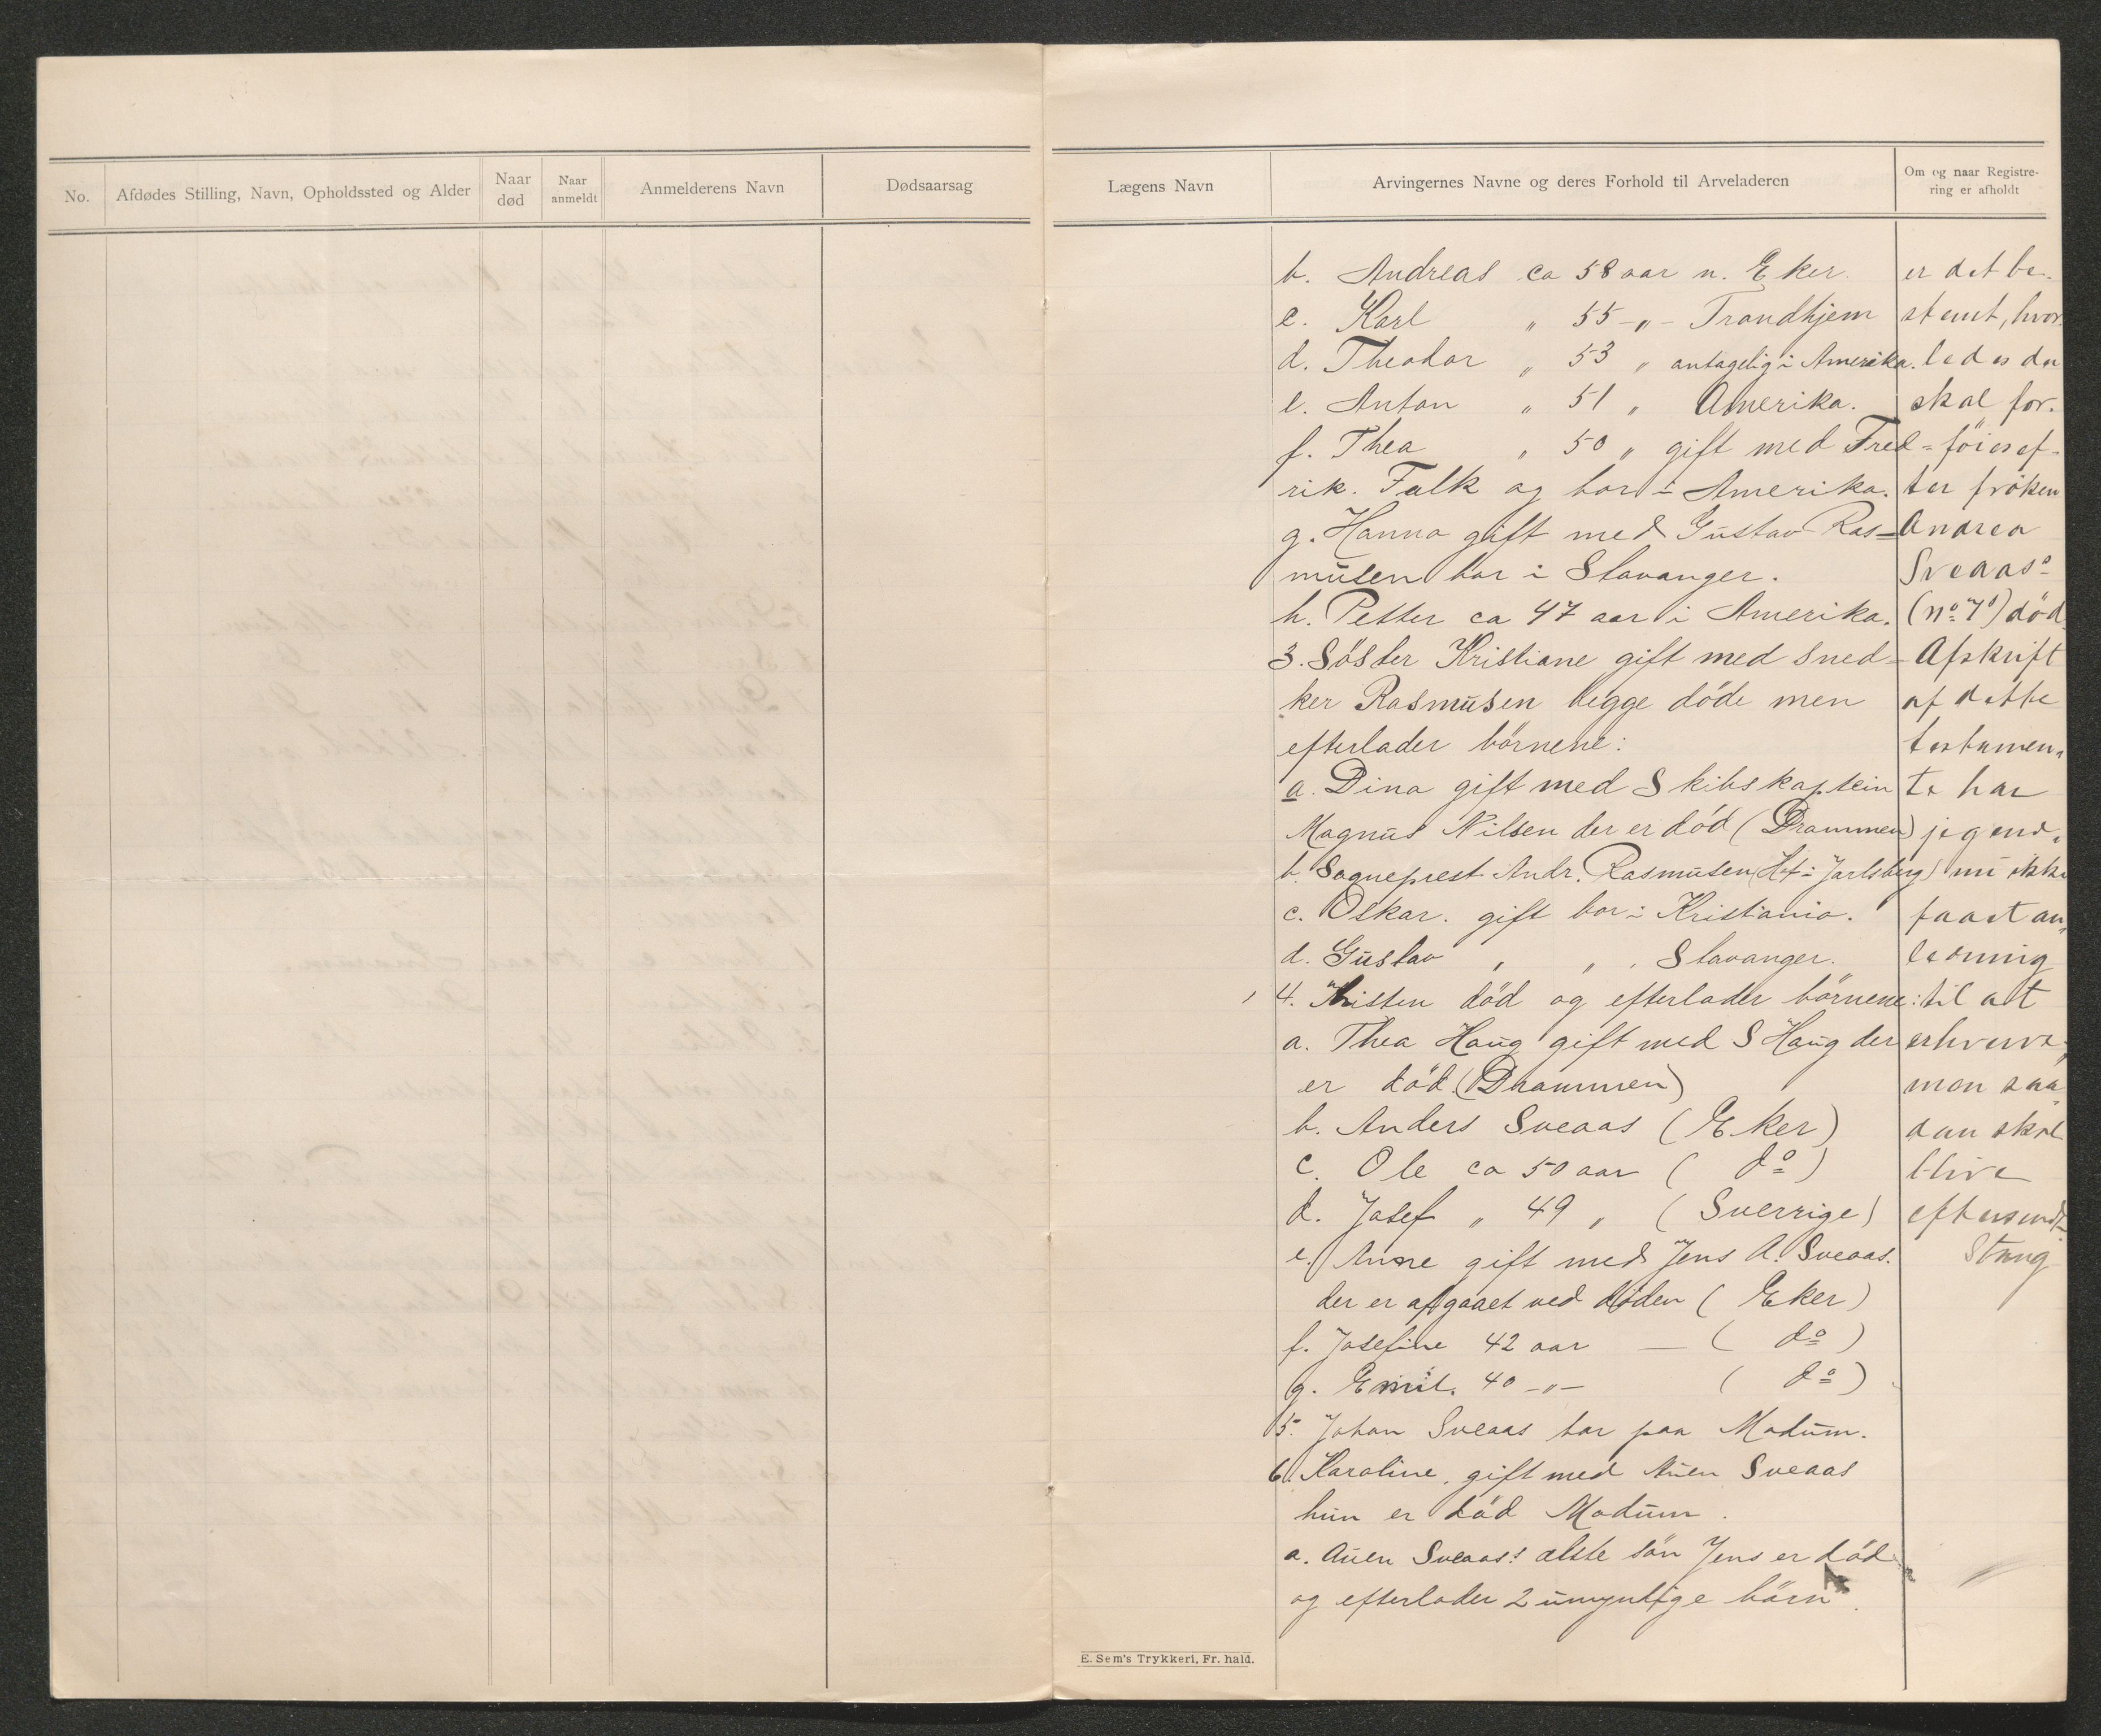 No.
Afdødes Stilling, Navn, Opholdssted og Alder
Naar død
Naar anmeldt
Anmelderens Navn
Dødsaarsag
Lægens Navn
Arvingernes Navne og deres Forhold til Arveladeren
Om og naar Registre-
ring er afholdt
b. Andreas ca 58 aar n. Eker.
c. Karl " 55 -"- Trondhjem
d. Theodor " 53 " antagelig i Amerika.
e. Anton " 51 " Amerika.
f. Thea " 50 " gift med Fred=
rik. Falk og bor i Amerika.
g. Hanna gift med Gustav Ras=
musen bor i Stavanger.
h. Petter ca 47 aar i Amerika.
3. Söster Kristiane gift med Sned-
ker Rasmusen begge döde men
efterlader börnene:
a. Dina gift med Skibskaptein
Magnus Nilsen der er död (Drammen)
b. Sogneprest Andr. Rasmusen (Hof i Jarlsberg)
c. Oskar. gift bor i Kristiania.
d. Gustav " " . Stavanger.
4. Kristen död og efterlader börnene:
a. Thea Haug gift med S Haug der
er död. (Drammen)
b. Anders Sveaas (Eker)
c. Ole ca 50 aar ( do )
d. Josef " 49 " (Sverrige)
e. Anne gift med Jens A. Sveaas.
der er afgaaet ved döden ( Eker )
f. Josefine 42 aar — ( do )
g. Emil. 40 -"- ( do )
5. Johan Sveaas bor paa Modum.
6. Karoline. gift med Auen Sveaas
hun er död Modum.
a. Auen Sveaas: ælste sön Jens er död
og efterlader 2 umyntige börn.
er det be-
stemt, hvor-
ledes der
skal for-
föies ef-
ter fröken
Andrea
Sveaas
(No 7) död.
Afskrift
af dette
testamen-
te har
jeg end-
nu ikke
faaet an-
ledning
til at
erhverve,
men saa-
dan skal
blive
eftersendt.
Stang
E. Sem's Trykkeri, Fr. hald.